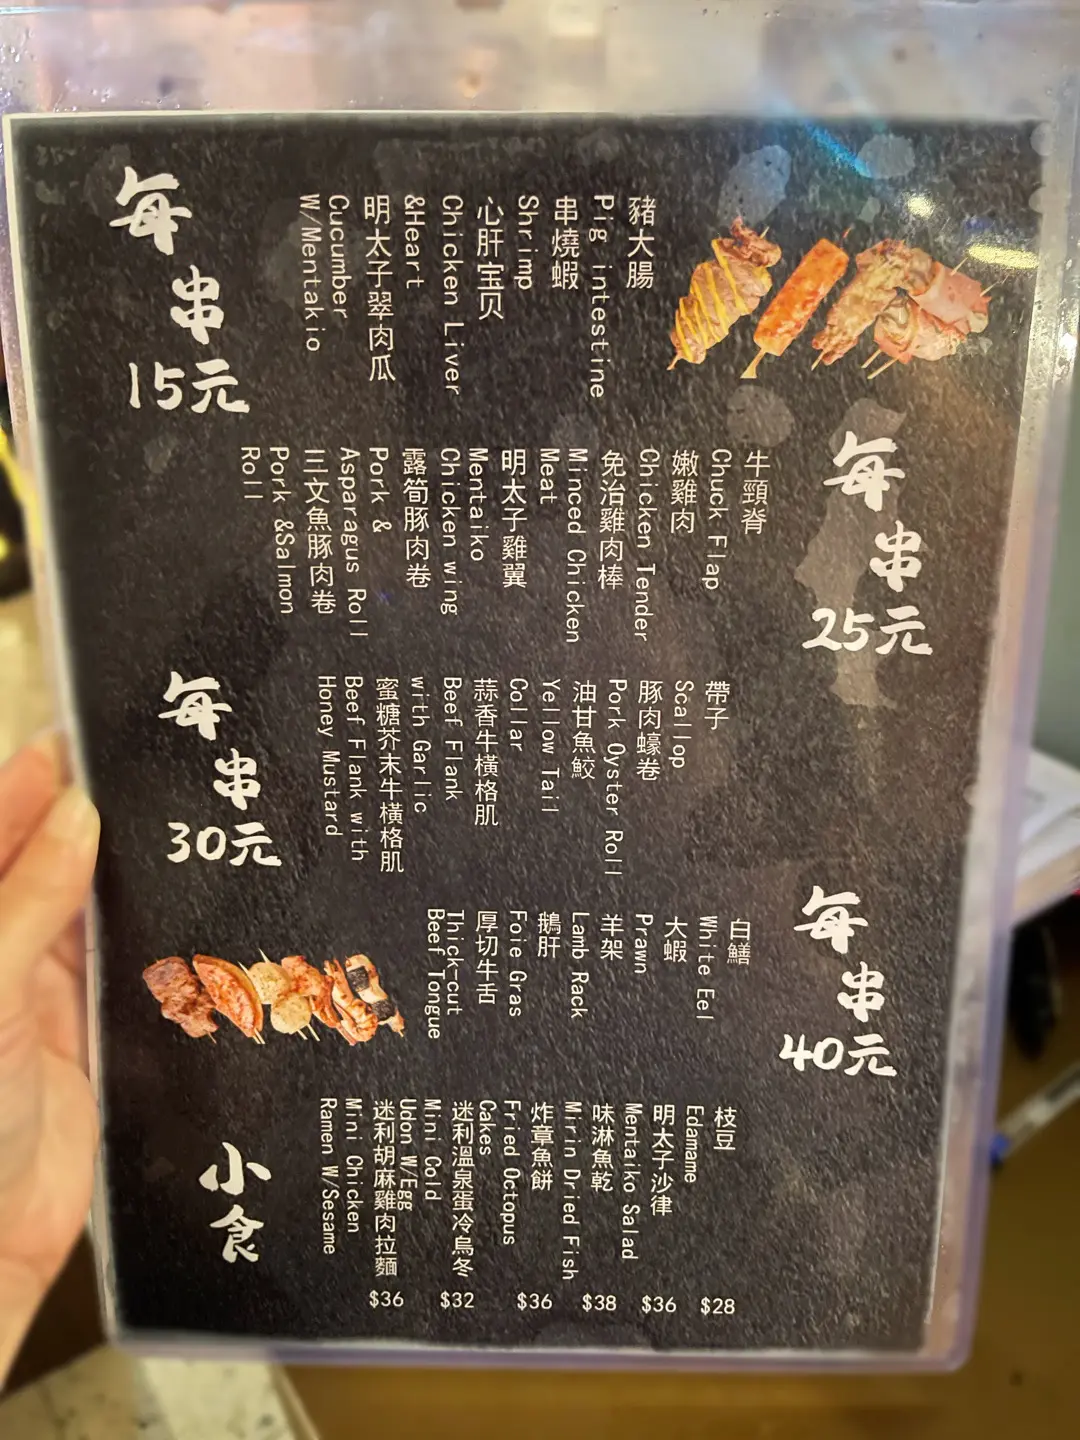 每串15元
豬大腸
Pig intestine
串燒蝦
Shrimp
心肝宝贝
Chicken Liver
&Heart
明太子翠肉瓜
Cucumber
W/Mentakio
每串25元
牛頸脊
Chuck Flap
嫩雞肉
Chicken Tender
免治雞肉棒
Minced Chicken
Meat
明太子雞翼
Mentaiko
Chicken wing
露筍豚肉卷
Pork &
Asparagus Roll
三文魚豚肉卷
Pork &Salmon
Roll
每串30元
帶子
Scallop
豚肉蠔卷
Pork Oyster Roll
油甘魚鮫
Yellow Tail
Collar
蒜香牛橫格肌
Beef Flank
with Garlic
蜜糖芥末牛橫格肌
Beef Flank with
Honey Mustard
每串40元
白鱔
White Eel
大蝦
Prawn
羊架
Lamb Rack
鵝肝
Foie Gras
厚切牛舌
Thick-cut
Beef Tongue
小食
枝豆
Edamame
$28
明太子沙律
Mentaiko Salad
$36
味淋魚乾
Mirin Dried Fish
$38
炸章魚餅
Fried Octopus
Cakes
$36
迷利溫泉蛋冷烏冬
Mini Cold
Udon W/Egg
$32
迷利胡麻雞肉拉麵
Mini Chicken
Ramen W/Sesame
$36